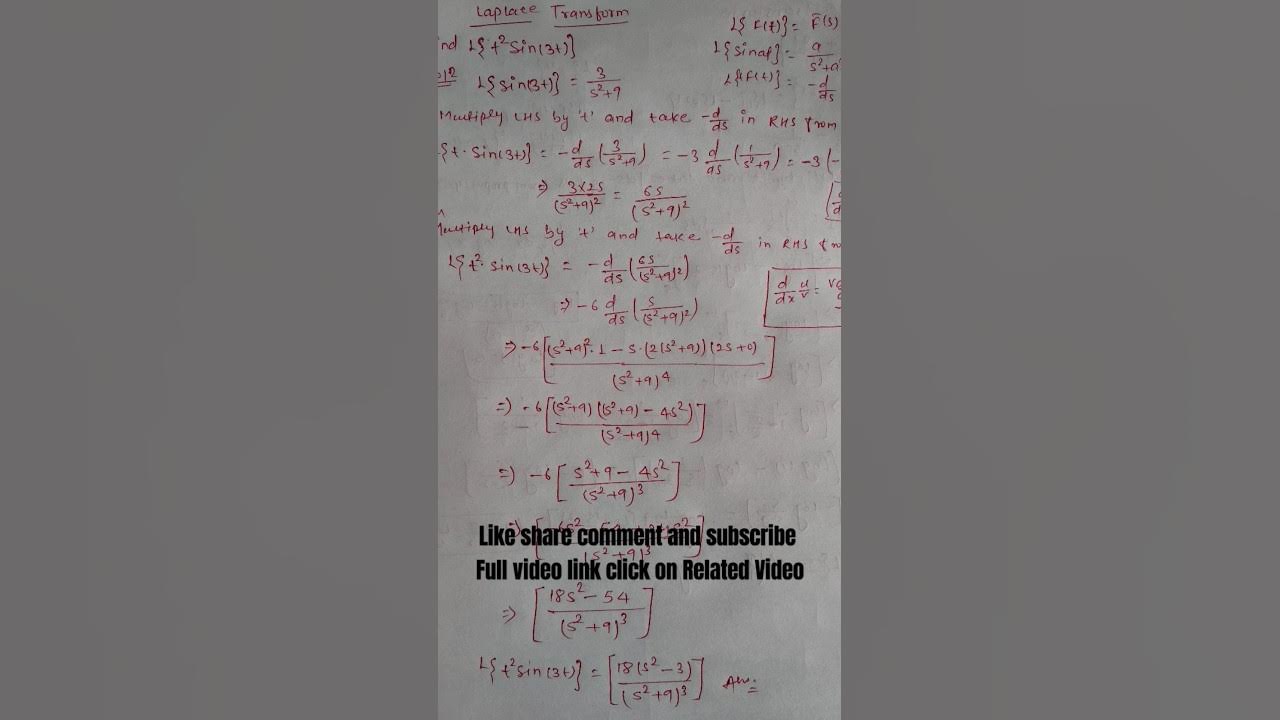 Laplace Transform
L{F(t)} = F̄(s)
nd L{t² sin(3t)}
L{sinat} = a/(s²+a²
L{sin(3t)} = 3/(s²+9)
L{tF(t)} = -d/ds
Multiply LHS by 't' and take -d/ds in RHS from
{t. sin(3t)} = -d/ds (3/(s²+9)) = -3 d/ds (1/(s²+9)) = -3(-
⇒ 3×2s/(s²+9)² = 6s/(s²+9)²
Multiply LHS by 't' and take -d/ds in RHS fro
L{t². sin(3t)} = -d/ds (6s/(s²+9)²)
d/dx u/v = v
⇒ -6 d/ds (s/(s²+9)²)
⇒ -6[((s²+9)².1 - s.(2(s²+9))(2s+0))/(s²+9)⁴]
⇒ -6[((s²+9)((s²+9) - 4s²))/(s²+9)⁴]
⇒ -6[(s²+9 - 4s²)/(s²+9)³]
Like share comment and subscribe
Full video link click on Related Video
⇒ [(18s² - 54)/(s²+9)³]
L{t² sin(3t)} = [18(s²-3)/(s²+9)³] Ans